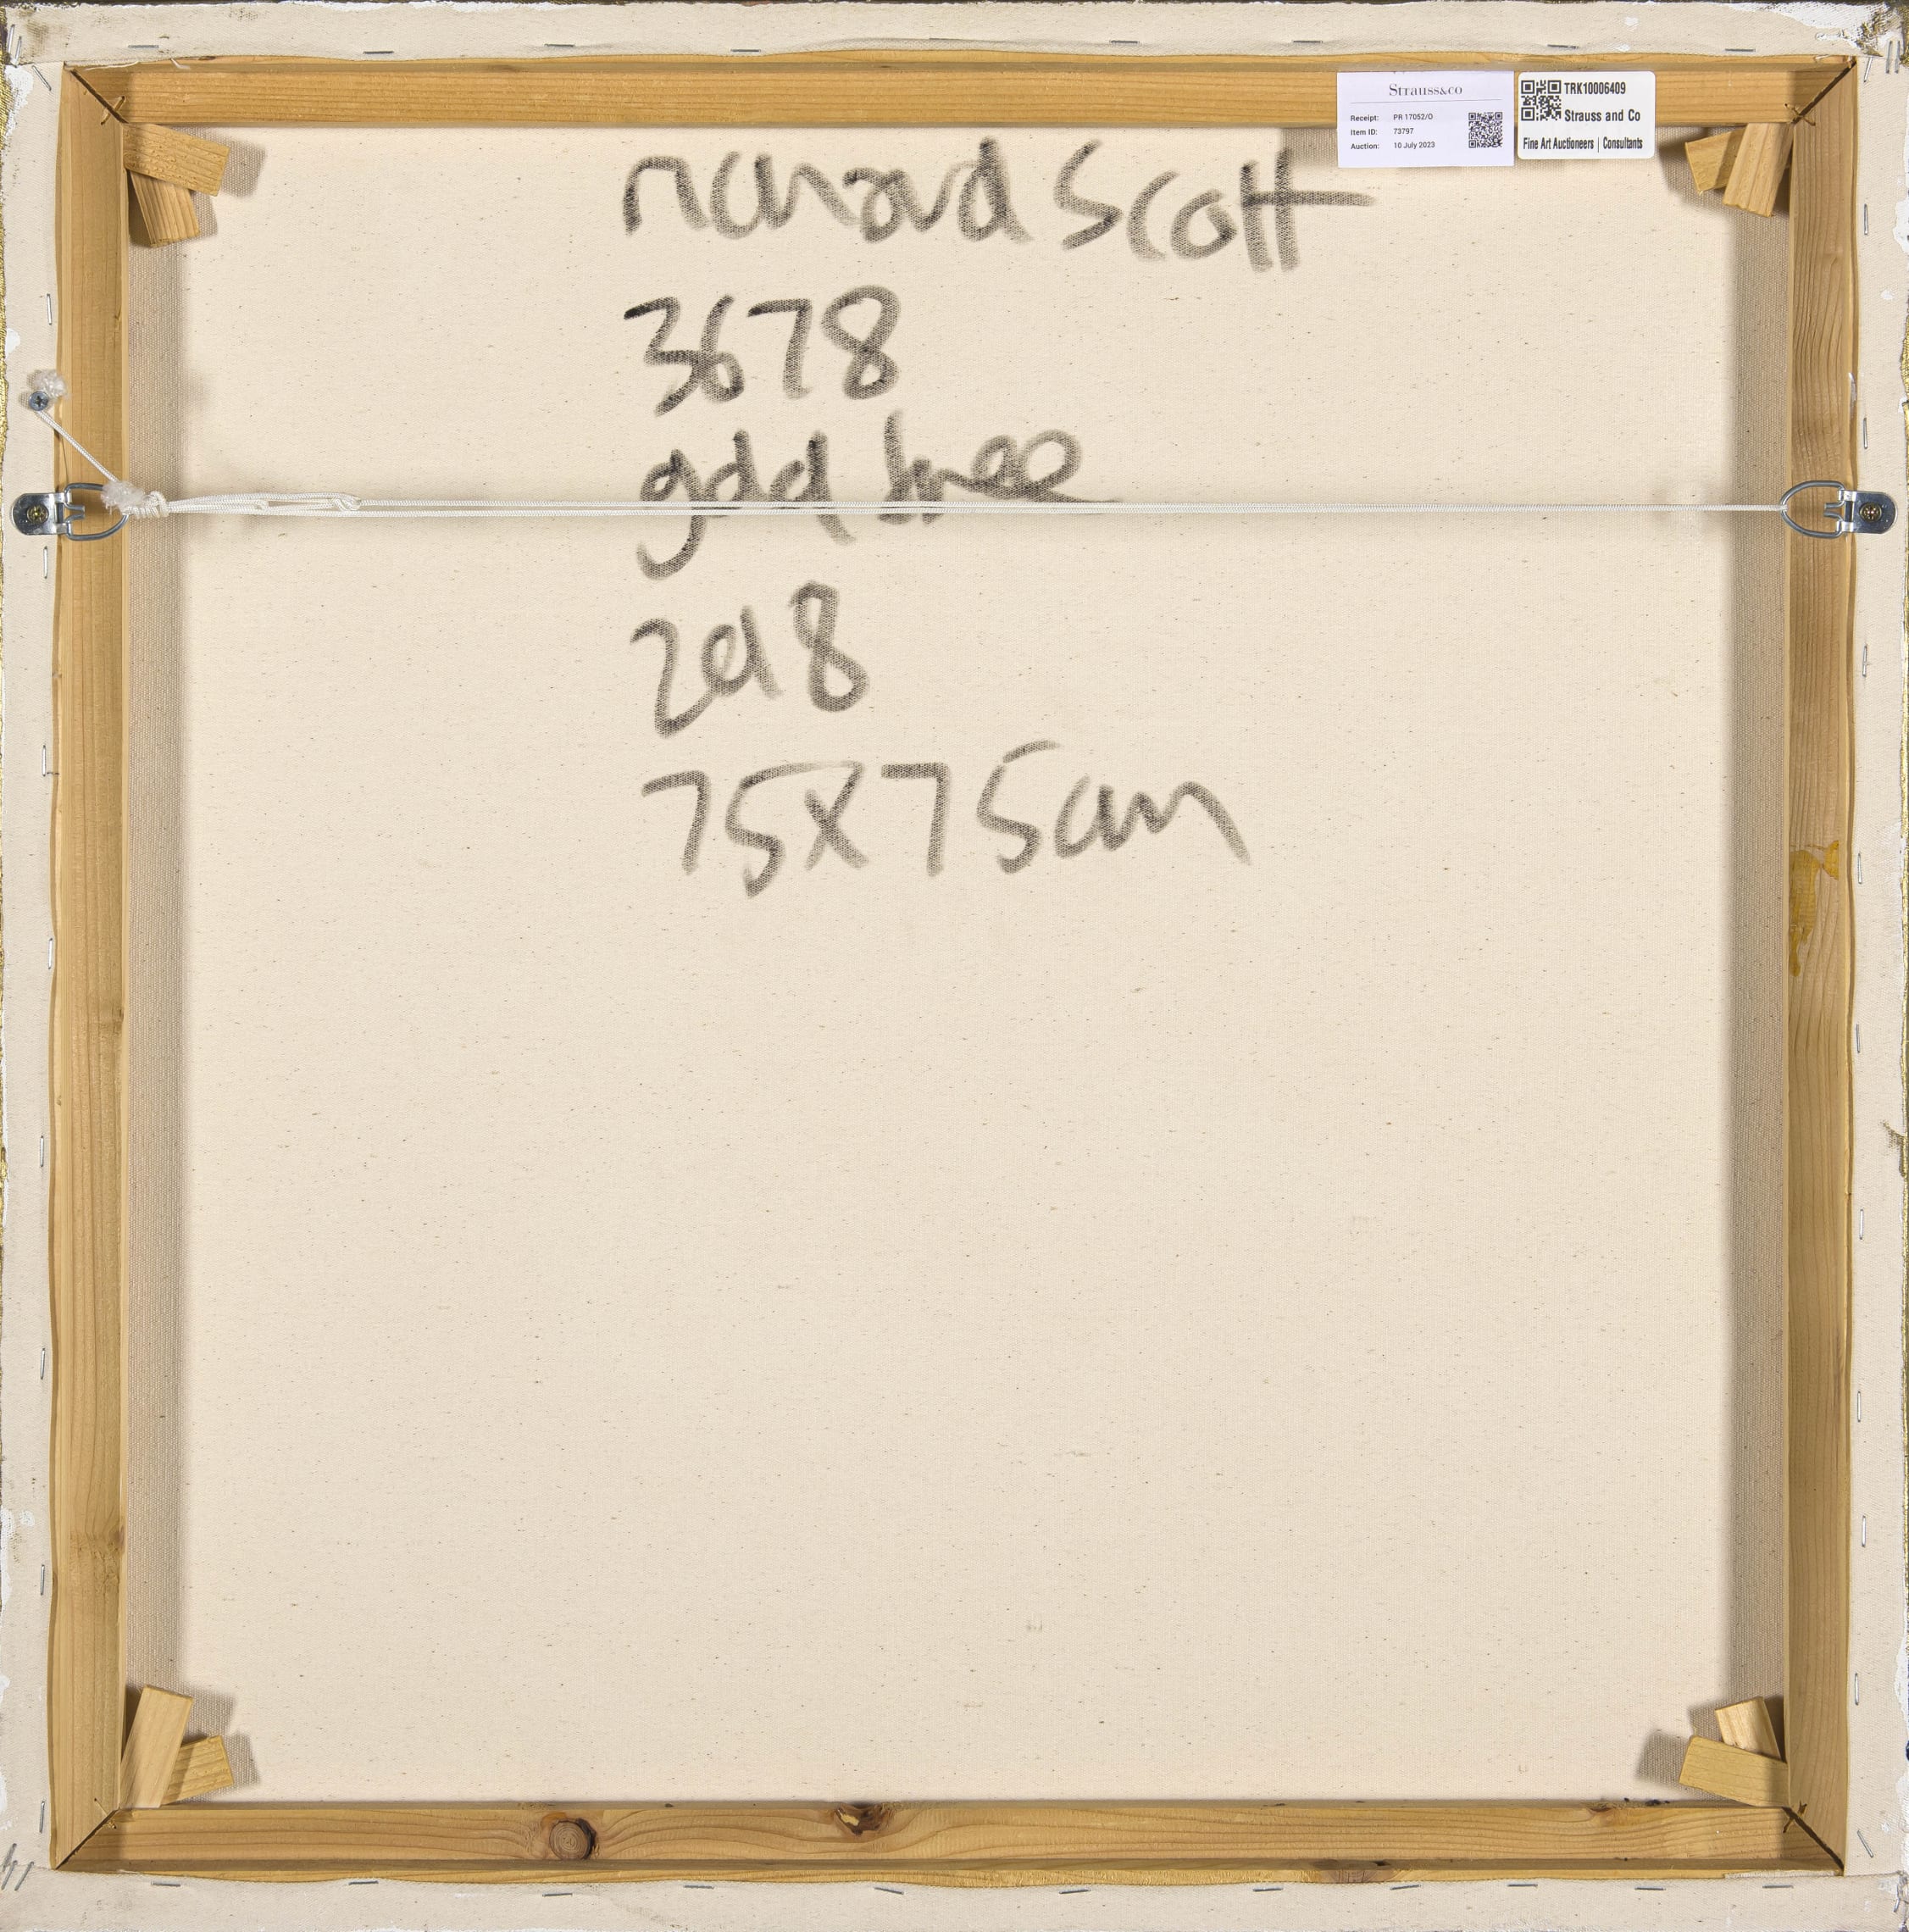 richard scott
3678
gold tree
2018
75x75cm
Strauss&co
Receipt: PR 17052/O
Item ID: 73797
Auction: 10 July 2023
TRK10006409
Strauss and Co
Fine Art Auctioneers | Consultants